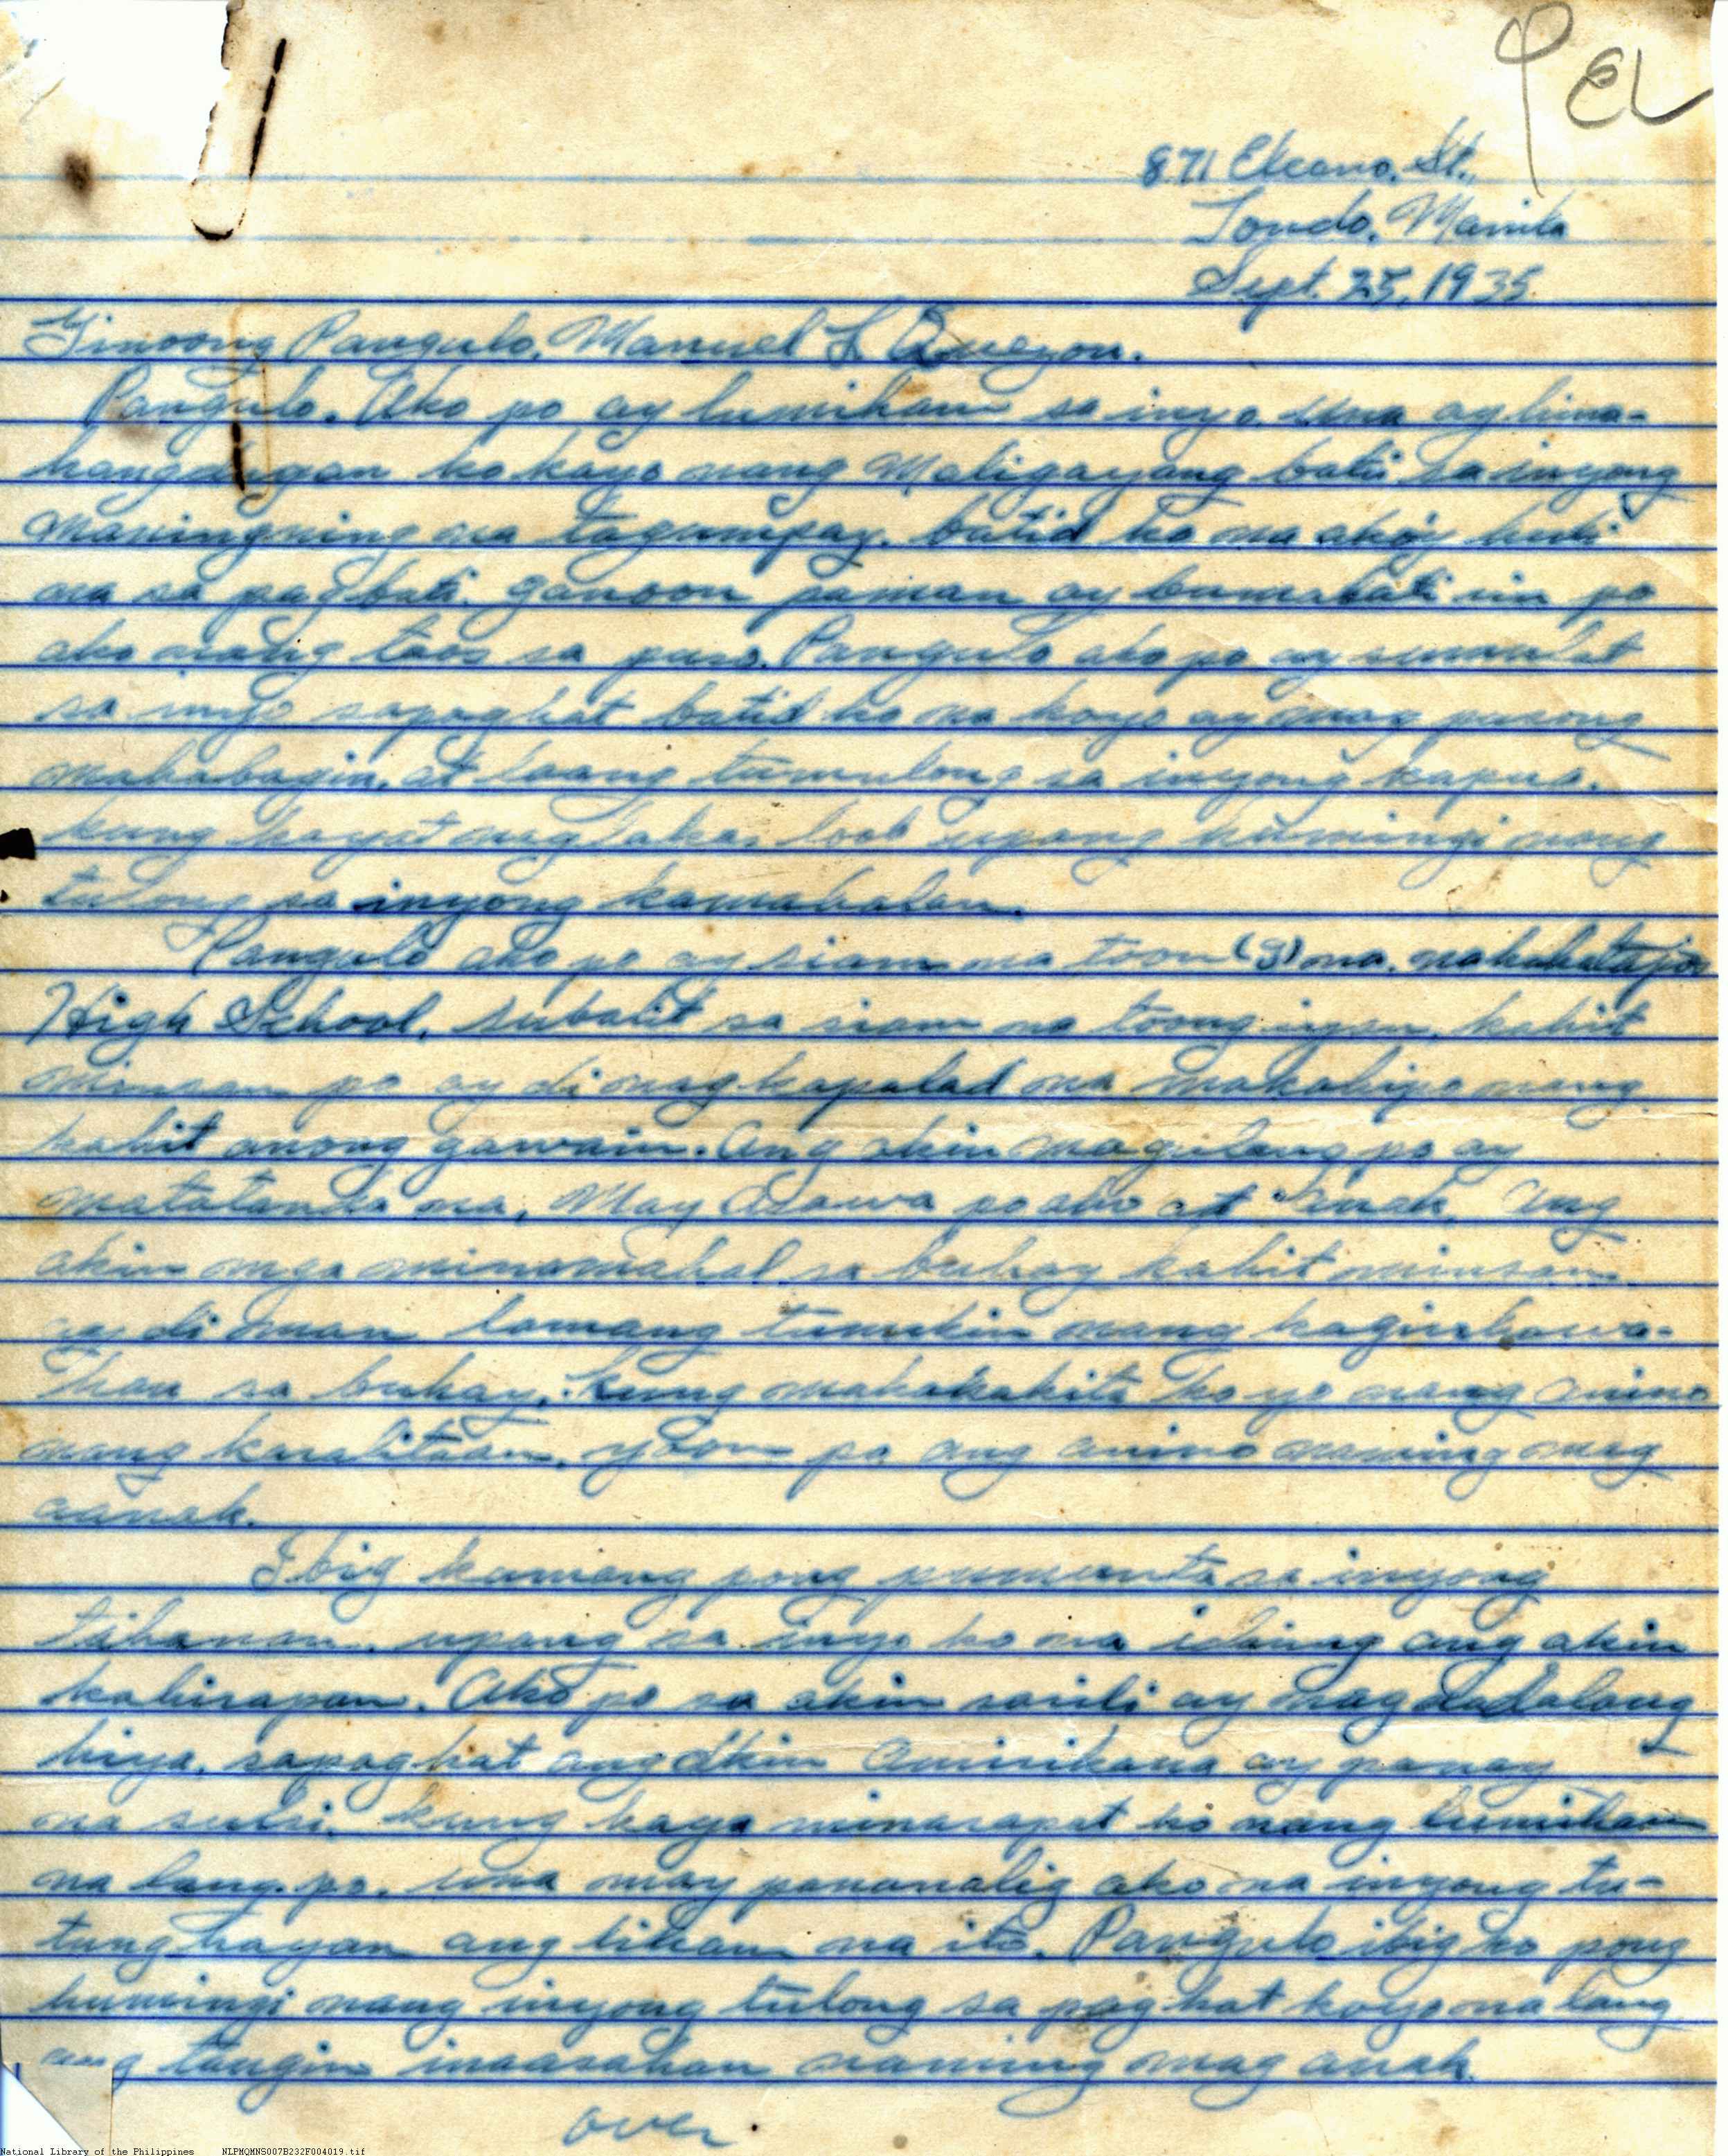 PEL
871 Elcano, St.,
Tondo, Manila
Sept. 25, 1935
Ginoong Pangulo, Manuel L Quezon.
Pangulo, Ako po ay lumiham sa inyo, una ay hina-
hangdugan ko kayo nang Maligayang bati sa inyong
maningning na tagumpay. batid ko na ako'y huli
na sa pag bati. ganoon paman ay bumabati rin po
ako nang taos sa puso. Pangulo ako po ay sumulat
sa inyo sapagkat batid ko na kayo ay may pusong
mahabagin, at laang tumulong sa inyong kapua.
kung kayat nag lakas loob upang humingi nang
tulong sa inyong kamahalan.
Pangulo ako po ay siam na toon (9) na, nakakatapos
High School, subalit sa siam na toong iyan, kahit
minsan po ay di nag kapalad na makahipo nang
kahit anong gawain. Ang akin magulang po ay
matatanda na, May Asawa po ako at Anak, Ang
akin mga minamahal sa buhay kahit minsan
ay di man lamang tumikim nang kaginhawa-
han sa buhay, kung makakakita kayo nang anino
nang karalitaan, yaon pa ang anino naming mag
aanak.
Ibig kamang pong pumunta sa inyong
tahanan, upang sa inyo ko na idaing ang akin
kahirapan. Ako po sa akin sarili ay nag dadalang
hiya, sapagkat ang akin Amirikana ay panay
na sulsi, kung kaya minarapat ko nang lumiham
na lang po, una may pananalig ako na inyong tu-
tunghayan ang liham na ito. Pangulo ibig ko pong
humingi nang inyong tulong sa pag kat kayo na lang
ang tanging inaasahan naming mag anak.
over
National Library of the Philippines NLPMQMNS007B232F004019.tif